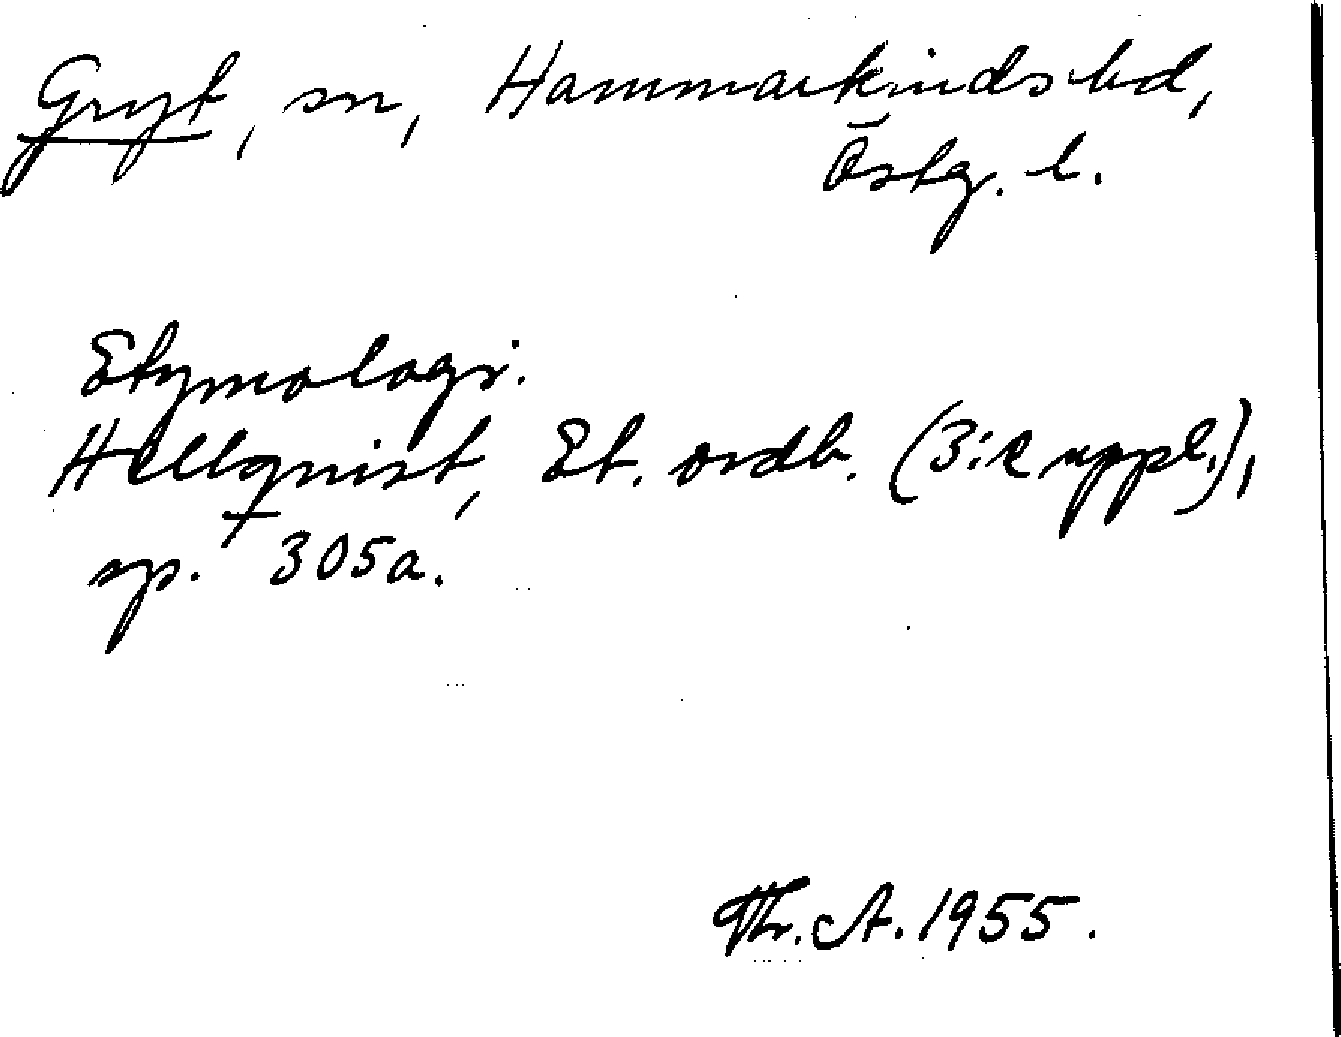 Gryt, sn, Hammarkinds hd,
Östg. l.
Etymologi.
Hellquist, Et. ordb. (3:e uppl.),
sp. 305a.
Thr. A. 1955.